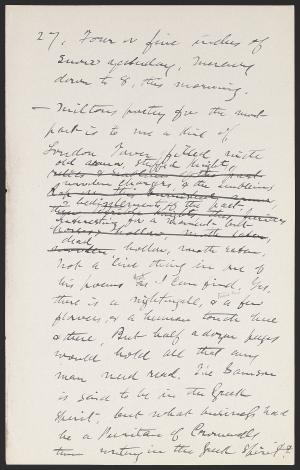 27, Four or five inches of
Snow yesterday, Mercury
down to 8, this morning.
— Milton's poetry for the most
part is to me a kind of
London Tower filled with
old armor, stuffed knights,
wooden chargers, & the emblems
& bedizzlements of the past.
interesting for a moment but
hollow, moth eaten,
dead
wooden, hollow, moth eaten,
Not a live thing in one of
his poems as I can find. Yes,
there is a nightingale, & a few
flowers, & a human touch here
& there, But half a dozen pages
would hold all that any
man need read. The Samson
is said to be in the Greek
Spirit, but what business had
be a Puritan of Cromwell's
time writing in the Greek Spirit?